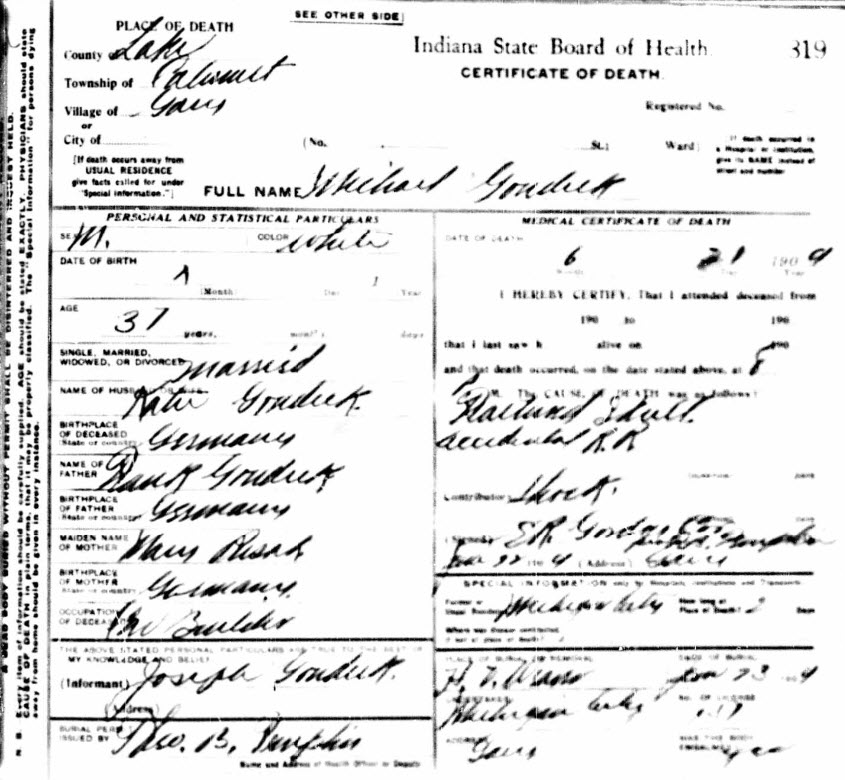 SEE OTHER SIDE
PLACE OF DEATH
Indiana State Board of Health. 319
CERTIFICATE OF DEATH.
County of Lake
Township of Calumet
Village of Gary
or
City of
Registered No.
(No. St.; Ward)
[If death occurs away from
USUAL RESIDENCE
give facts called for under
"Special information."]
[If death occurred in
a Hospital or institution,
give its NAME instead of
street and number
FULL NAME Michael Gondeck
PERSONAL AND STATISTICAL PARTICULARS
SEX M. COLOR White
DATE OF BIRTH
1 1
(Month) Day Year
AGE
37 years, months, days
SINGLE, MARRIED,
WIDOWED, OR DIVORCED Married
NAME OF HUSBAND OR WIFE
Katie Gondeck.
BIRTHPLACE
OF DECEASED
State or country Germany
NAME OF
FATHER Frank Gondeck
BIRTHPLACE
OF FATHER
State or country Germany
MAIDEN NAME
OF MOTHER Mary
BIRTHPLACE
OF MOTHER
State or country Germany
OCCUPATION
OF DECEASED Car Builder
THE ABOVE STATED PERSONAL PARTICULARS ARE TRUE TO THE BEST OF
MY KNOWLEDGE AND BELIEF
(Informant) Joseph Gondeck.
(Address)
BURIAL PERMIT
ISSUED BY Theo. B. Templin
Name and Address of Health Officer or Deputy
MEDICAL CERTIFICATE OF DEATH
DATE OF DEATH
6 21 1909
Month Day Year
I HEREBY CERTIFY, That I attended deceased from
190 to 190
that I last saw h alive on 190
and that death occurred, on the date stated above, at 8
M. The CAUSE OF DEATH was as follows:
Fractured Skull.
accidental R.R.
Contributory Shock.
(Signed) E.R. Gordon
(Address) Gary
SPECIAL INFORMATION only for Hospitals, Institutions and Transients
Former or
Usual Residence Michigan City How long at
Place of Death? 2 Days
Where was disease contracted,
if not at place of death?
PLACE OF BURIAL OR REMOVAL DATE OF BURIAL
23 1909
UNDERTAKER NO. OF LICENSE
Michigan City
ADDRESS WAS THE BODY
EMBALMED
Gary yes
N. B. Every item of information should be carefully supplied. AGE should be stated EXACTLY. PHYSICIANS should state
CAUSE OF DEATH in plain terms, that it may be properly classified. The "Special Information" for persons dying
away from home should be given in every instance.
A DEAD BODY BURIED WITHOUT PERMIT SHALL BE DISINTERRED AND INQUEST HELD.